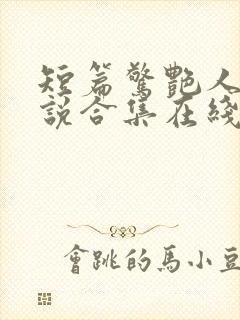 短篇驚艷人
說合集在綫
會跳的馬小豆